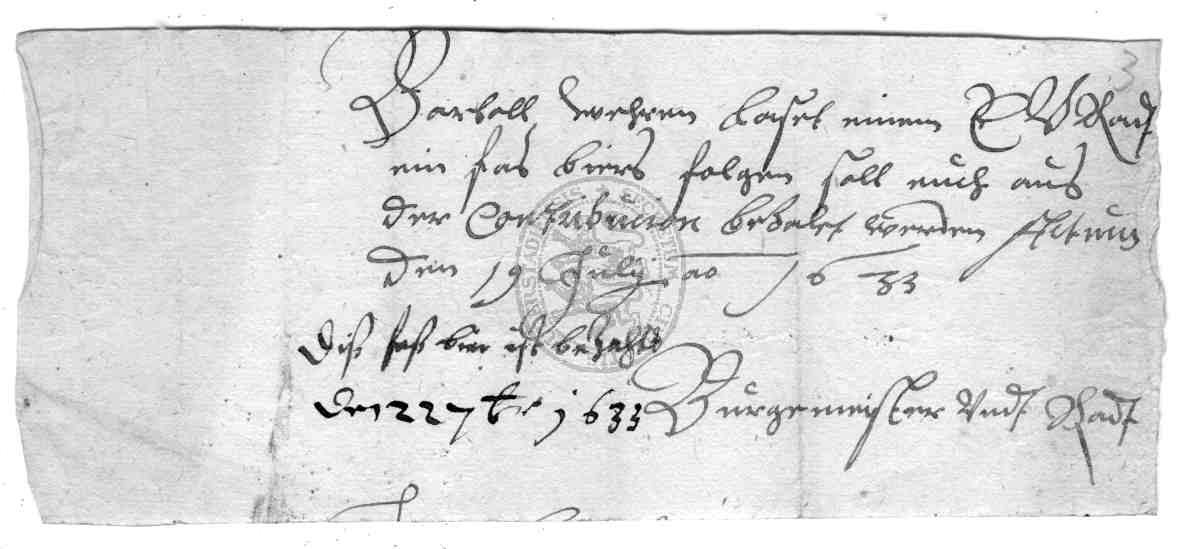 3
Bartoll wehren laset einem E W Radt
ein fas biers folgen soll euch aus
der Contribution bezalet werden
den 19 July ao 1633
Diß faß bier ist bezahlt
den 22 7br 1633 Burgemeister Vndt Radt